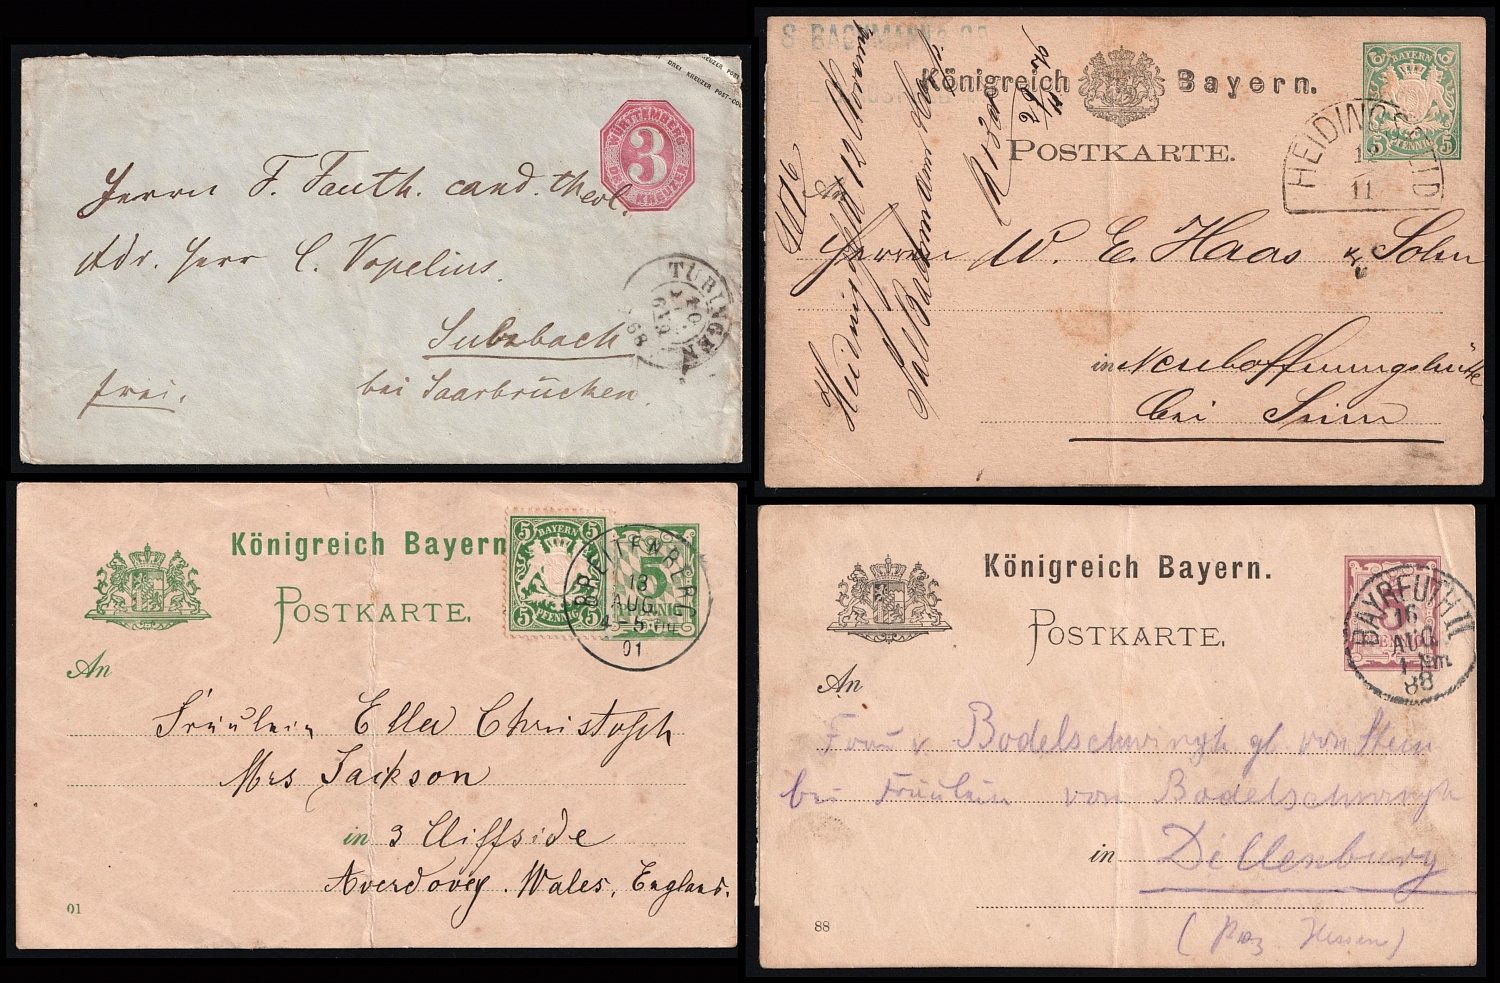 DREI KREUZER POST-COU
WÜRTTEMBERG
3
DREI KREUZER
Herrn F. Fauth. cand. theol.
Adr. Herr C. Vopelius.
Sulzbach
bei Saarbrücken.
frei.
TÜBINGEN
68
S. BACHMANN
Königreich Bayern.
POSTKARTE.
BAYERN
5 5
PFENNIG
HEIDINGSFELD
11
An
Herrn W. E. Haas & Sohn
in Neuhoffnungshütte
bei Sinn
Königreich Bayern
POSTKARTE.
5 5
BAYERN
5 5
PFENNIG
5
PFENNIG
BREITENBERG
18
AUG.
4-5
01
An
Fräulein Ella Christoph
Mrs Jackson
in 3 Cliffside
Averdovey. Wales, England.
01
Königreich Bayern.
POSTKARTE.
5
BAYREUTH II
16
AUG
1 Nm
88
An
Frau v Bodelschwingh gb von Stein
bei Fräulein von Bodelschwingh
in Dillenburg
88